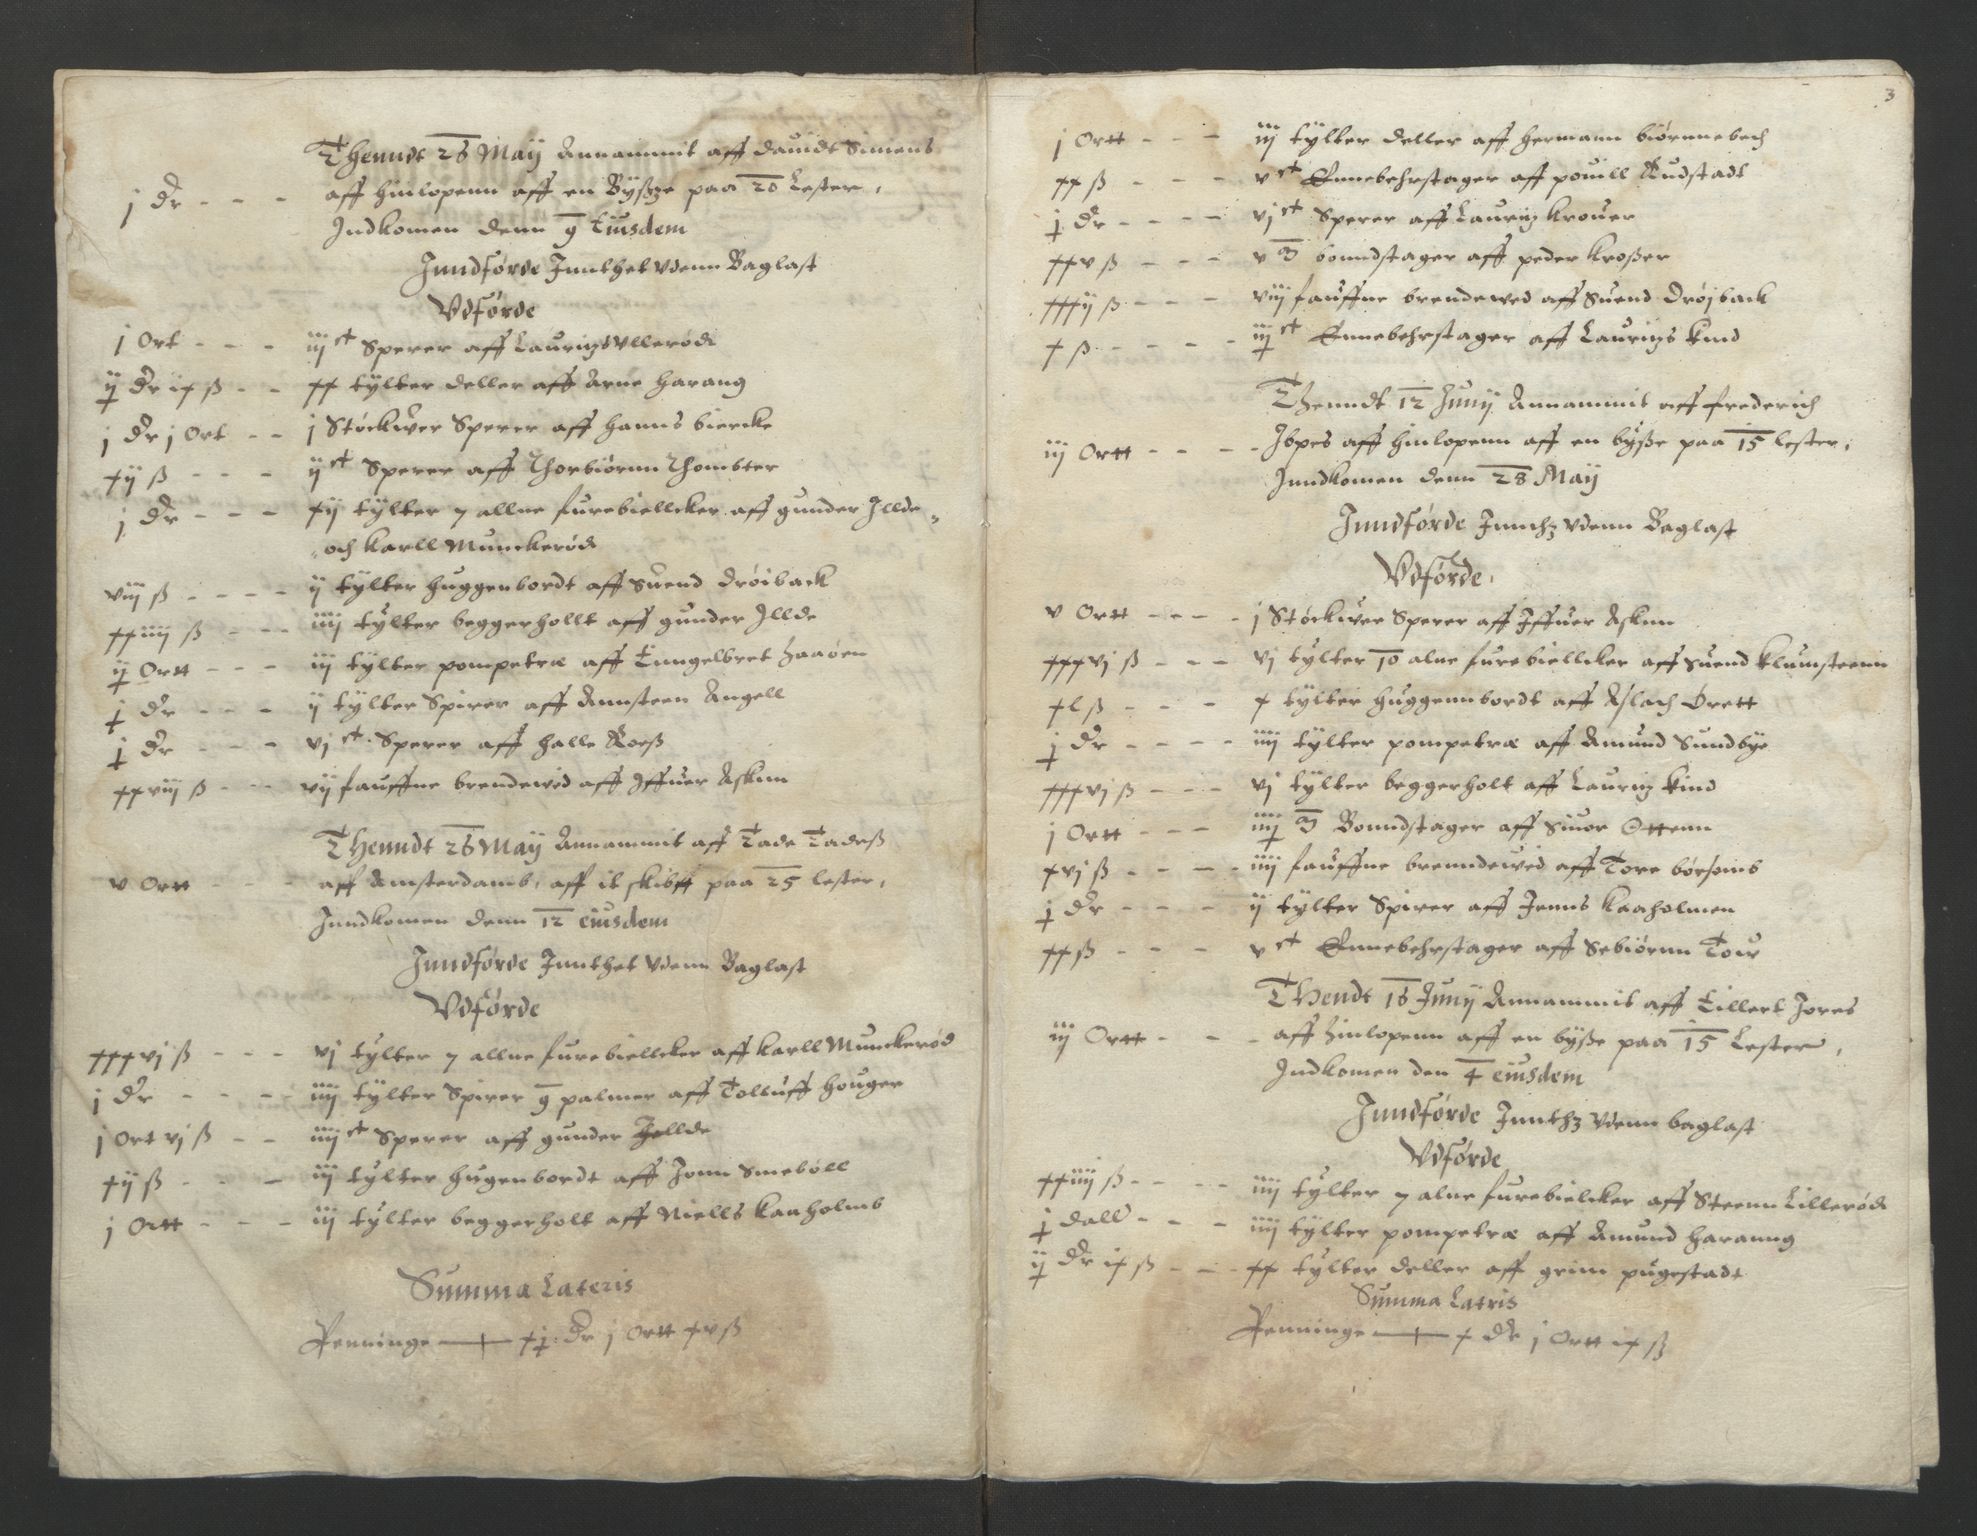 Thenndt 26 Maij Annammit aff dauidt Simens
j dr - - - aff hinlopenn aff en Byßze paa 20 Lester,
Indkomen denn 9 Eiusdem
Inndførde Innthet vdenn Baglast
Vdførde
j Ort - - - iij ct Sperer aff Lauritz Vllerødt
dr ix ß - - xx tylter deller aff Arne harang
j dr j Ort - - j Støckuer Sperer aff hanns biercke
xij ß - - - ij ct Sperer aff Thorbiørnn Thombter
j dr - - - xij tylter 7 allne furebiellcker aff gunder Illde
och karll Munckerødt
viij ß - - - - ij tylter huggenbordt aff Suend drøiback
xxiiij ß - - - iiij tylter beggerhollt aff gunder Illde
Ortt - - - iij tylter pompetræ aff Enngelbret haaøen
dr - - - ij tylter Spirer aff Annsteen Angell
dr - - - vj ct Sperer aff halle Roeß
xxviij ß - - - vij fauffne brendewed aff Iffuer Askim
Thenndt 26 Maij Annammit aff Tade Tadeß
v Ort - - - aff Amsterdamb, aff it skib paa 25 lester,
Inndkomen denn 12 eiusdem
Inndførde Innthet vdenn Baglast
Vdførde
xxxvj ß - - - vj tylter 7 allne furebiellcker aff karll Munckerød
j dr - - - - iiij tylter Spirer 9 palmer aff Tolluff houger
j Ort vj ß - - iiij ct Sperer aff gunder Jellde
xij ß - - - iij tylter hugenbordt aff Jonn Smebøll
j Ortt - - - iij tylter beggerholt aff Niells kaaholmb
Summa Lateris
Penninge dr j Ortt xv ß
3
j Ortt - - - iij tylter deller aff hermann biørnnebech
xx ß - - - v ct Ennebehrstager aff pouill Rudstadt
dr - - - - vj ct Sperer aff Lauritz krouer
xxv ß - - - v bonndstager aff peder kroßer
xxxij ß - - - viij fauffne brendewed aff Suend drøjback
x ß - - - - ct Ennebehrstager aff Lauritzs kind
Thenndt 12 Junij Annammit aff frederich
iij Ortt - - - - Ibpes aff hinlopenn aff en byße paa 15 lester,
Inndkomen denn 28 Maij
Inndførde Innthz vdenn Baglast
Vdførde,
v Ortt - - - - j Støckuer Sperer aff Iffuer Askim
xxxvj ß - - - vj tylter 10 alne furebiellcker aff Suend klumsteenn
xl ß - - - x tylter huggennbordt aff Aslach Orett
dr - - - - iiij tylter pompetræ aff Amund Sundbye
xxxvj ß - - - vj tylter beggerholt aff Lauritz kind
j Ortt - - - Bonndstager aff Siuor Ottenn
xvj ß - - - - iiij fauffne brenndewed aff Tore børsomb
dr - - - ij tylter Spirer aff Jenns kaaholmen
xx ß - - - v ct Ennebehrstager aff Sebiørnn Tour
Thendt 16 Junij Annammit aff Eillert Jores
iij Ortt - - - aff hinlopenn aff en byße paa 15 Lester,
Indkomen den 4 eiusdem
Inndførde Innthz vdenn baglast
Vdførde
xxiiij ß - - - - iiij tylter 7 alne furebielcker aff Steenn Lillerødt
dall - - - iiij tylter pompetræ aff Amund haranng
dr ix ß - - - xx tylter deller aff grim pugestadt
Summa Latris
Penninge x dr j Ortt ix ß